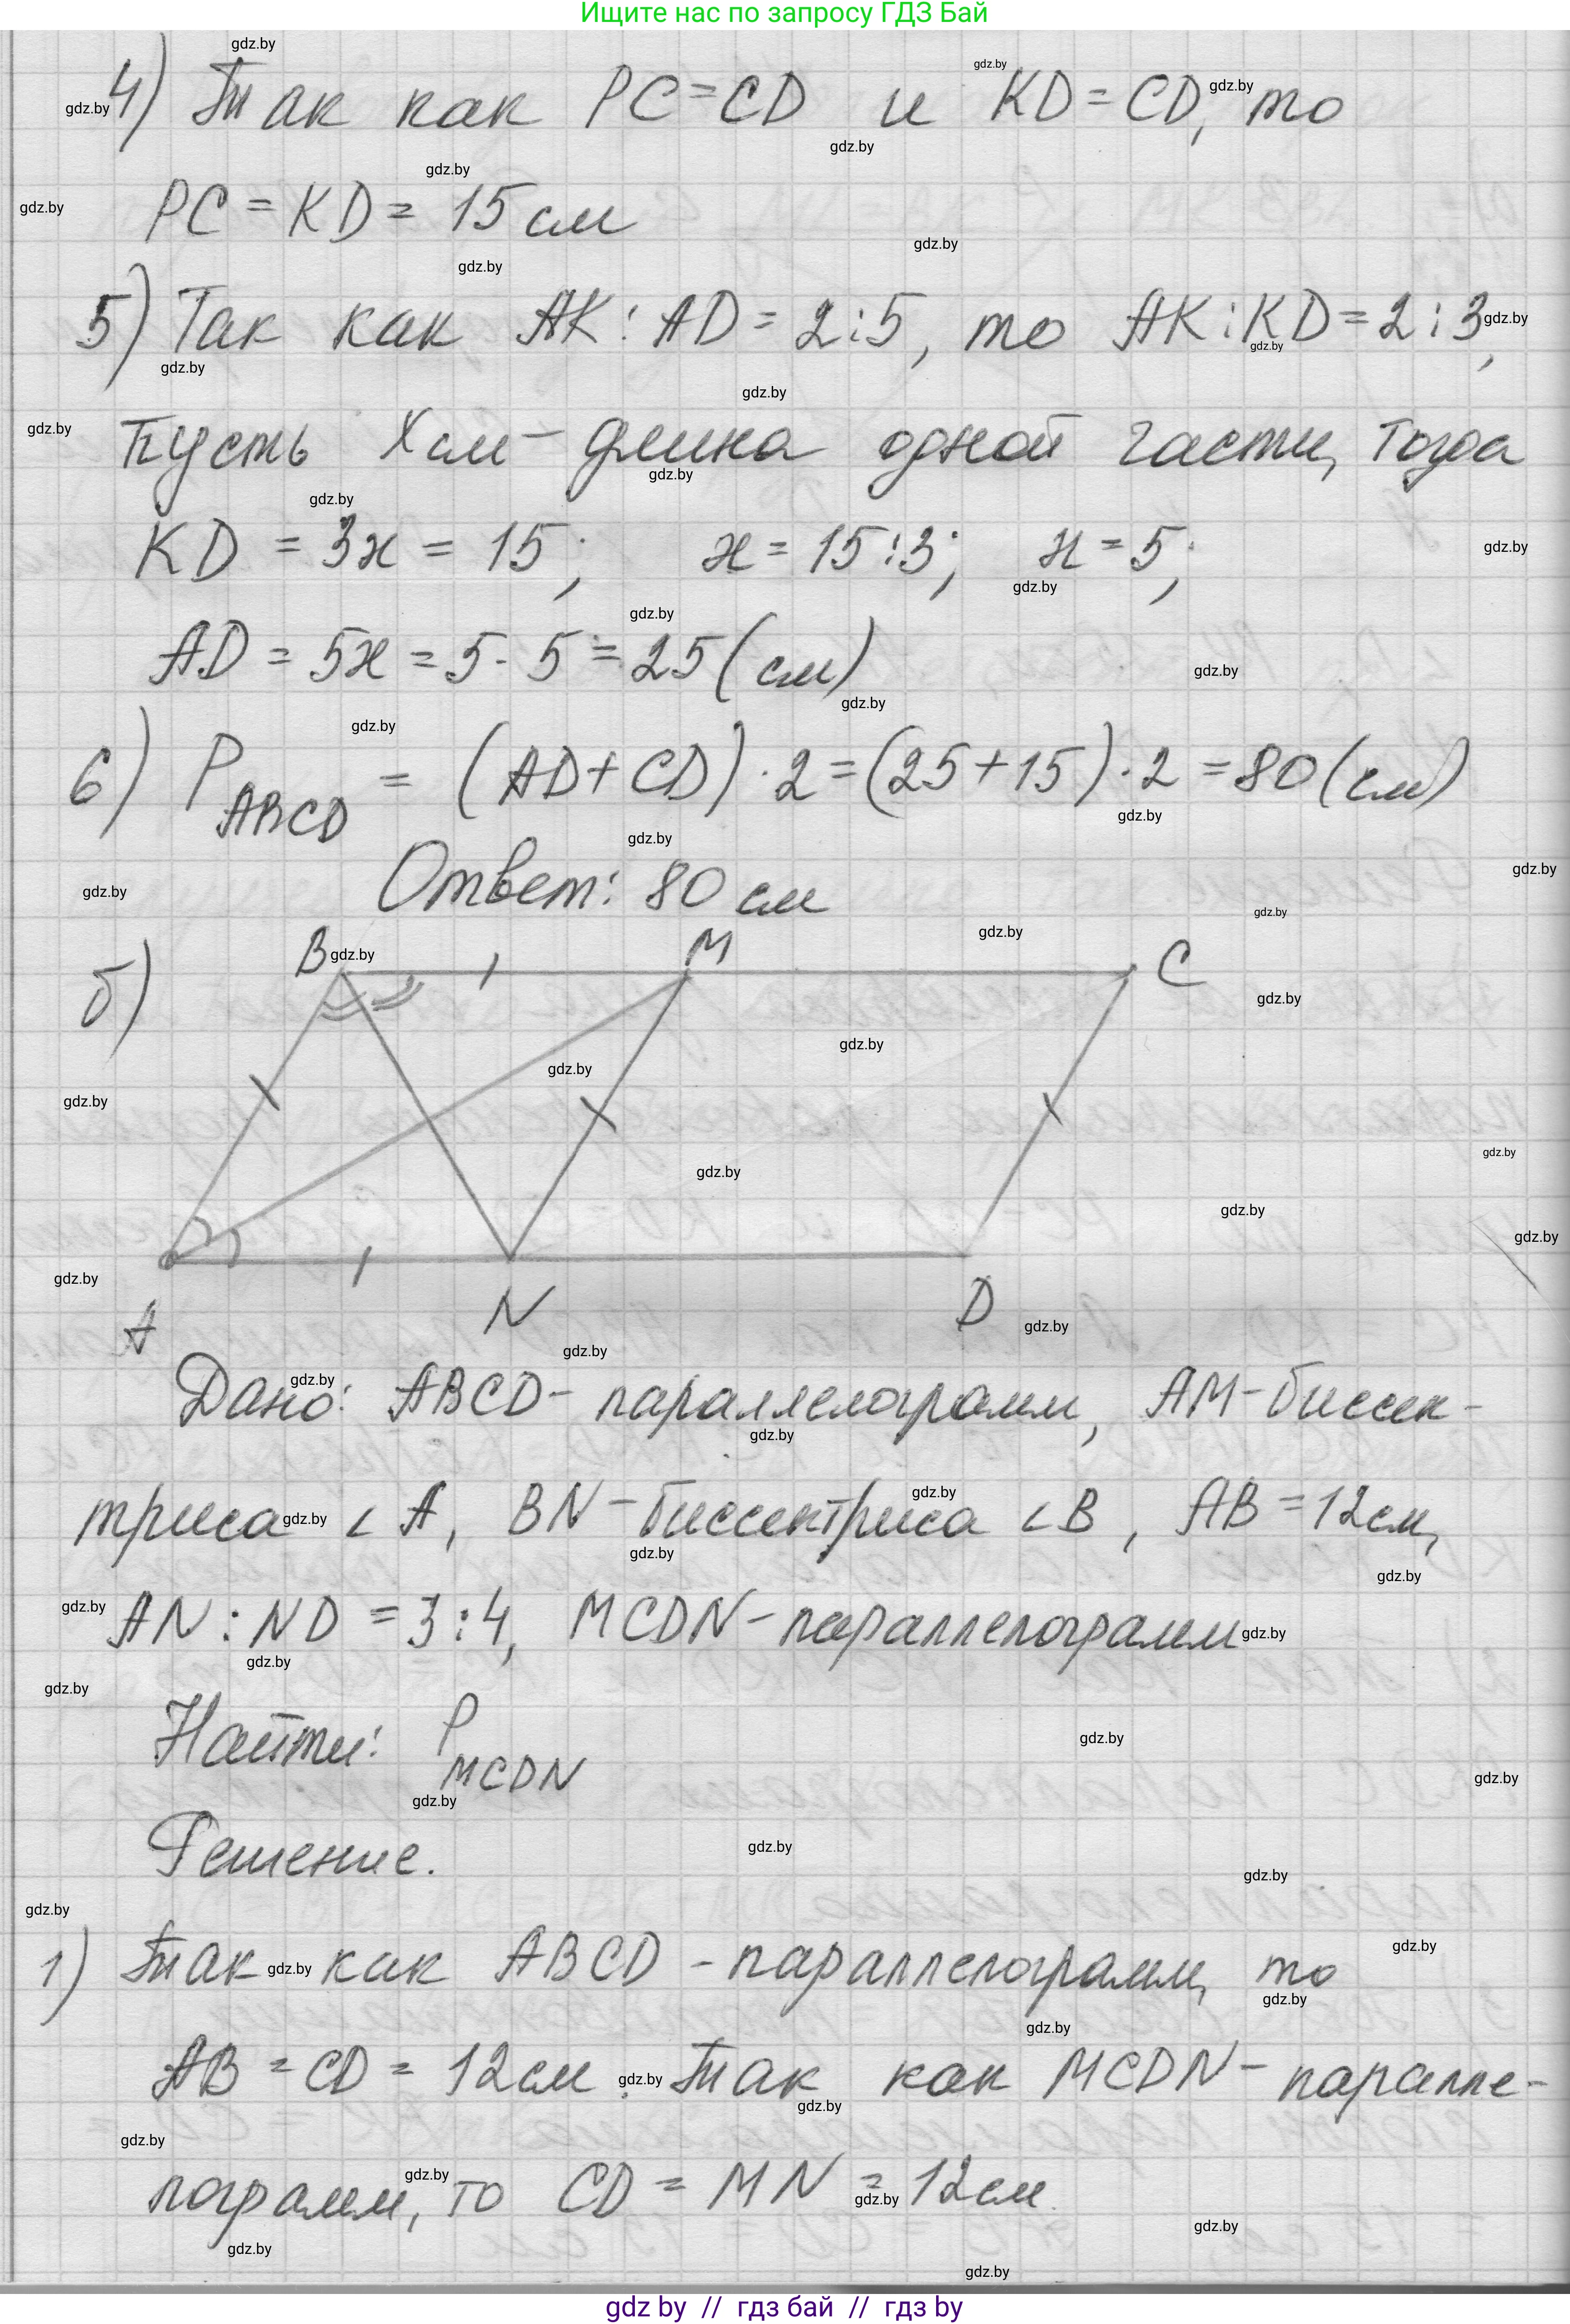 Ищите нас по запросу ГДЗ Бай
4) Так как PC=CD и KD=CD, то
PC = KD = 15 см
5) Так как AK : AD = 2:5, то AK : KD = 2 : 3,
пусть X см - длина одной части, тогда
KD = 3x = 15; x = 15:3; x = 5;
AD = 5x = 5 · 5 = 25 (см)
6) P ABCD = (AD + CD) · 2 = (25 + 15) · 2 = 80 (см)
Ответ: 80 см
б)
B M C
A N D
Дано: ABCD - параллелограмм, AM - биссек-
триса ∠A, BN - биссектриса ∠B, AB = 12 см,
AN : ND = 3:4, MCDN - параллелограмм
Найти: P MCDN
Решение.
1) Так как ABCD - параллелограмм, то
AB = CD = 12 см. Так как MCDN - паралле-
лограмм, то CD = MN = 12 см.
gdz by // гдз бай // гдз by